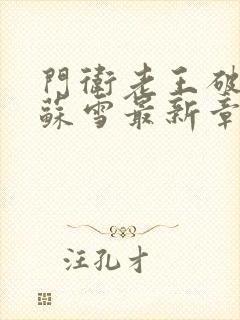 門衛老王破
蘇雪最新章
汪孔才